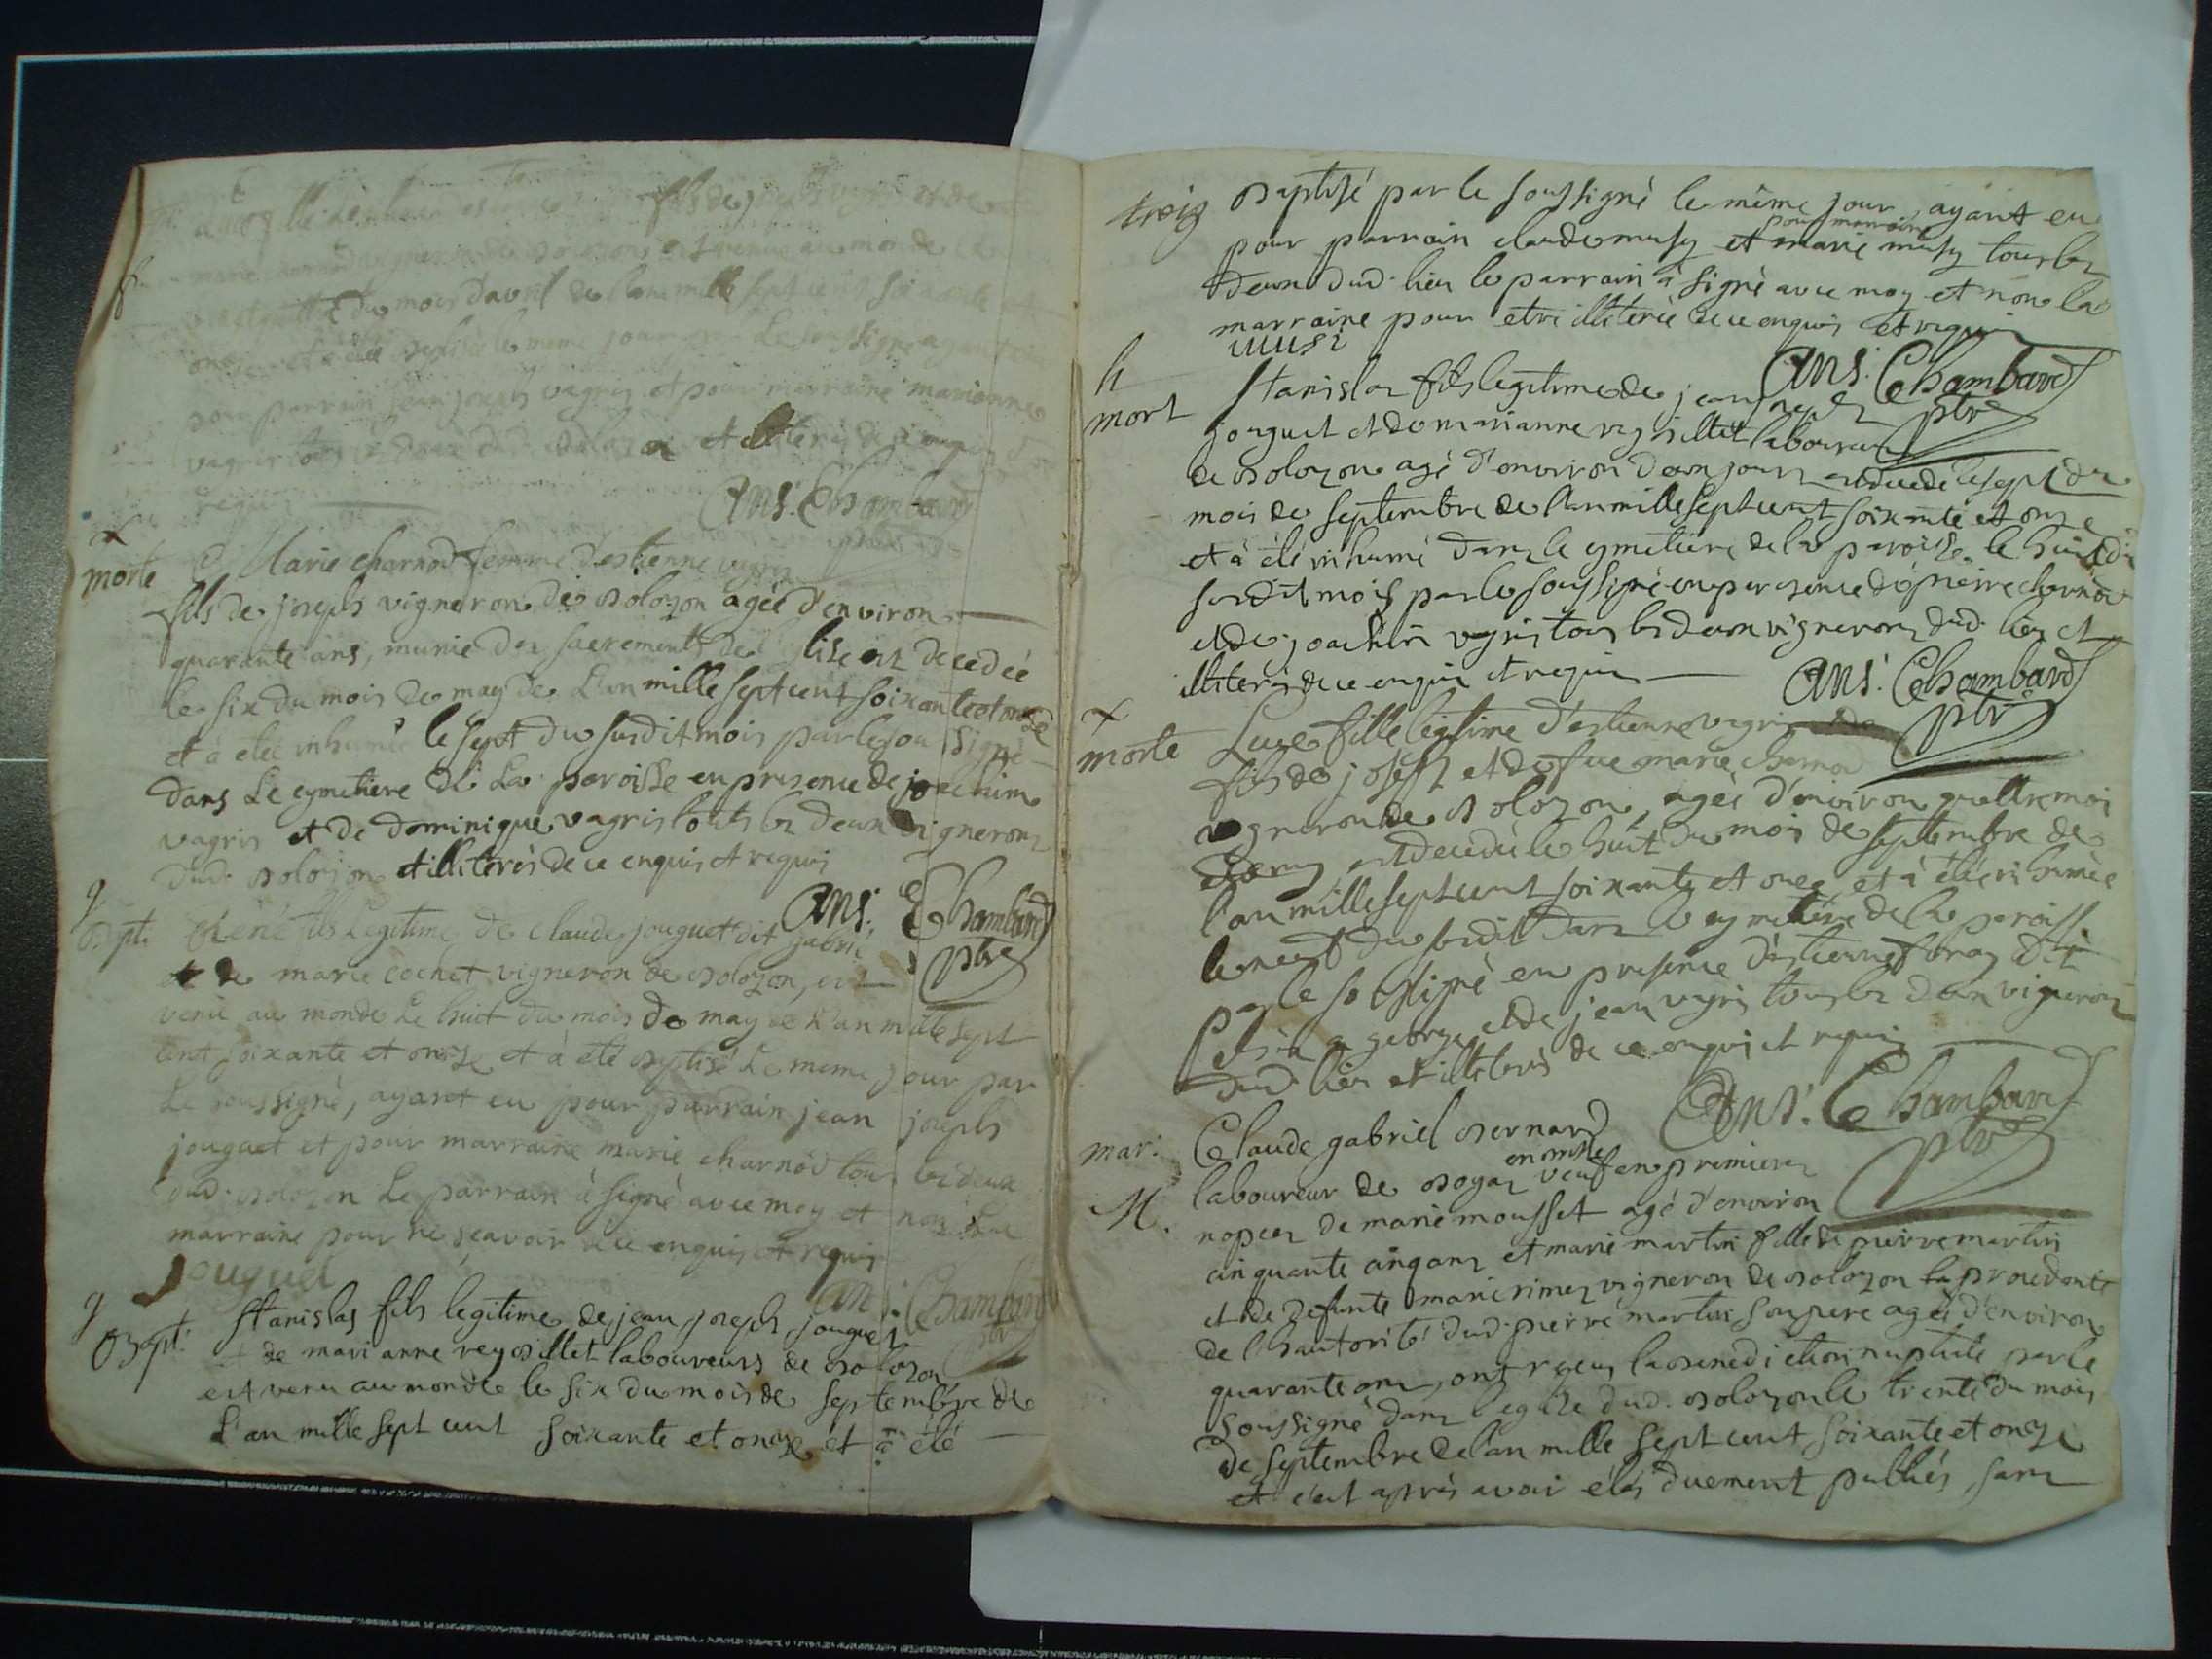 fils de
marie charnod vigneron de Bolozon est venu au monde
du mois d'avril de l'an mille sept cent soixante et
onze et a été baptisé le meme jour par Le soussigné ayant eu
pour parrain jean joseph vagris et pour marraine marianne
vagris tous les deux dud. Bolozon et illiterés de ce enquis
requis
Ans. Chambard
ptre
morte
Marie charnod femme d'estienne vagris
fils de joseph vigneron de Bolozon agée d'environ
quarante ans, munie des sacrements de l'eglise est decedée
le six du mois de may de L'an mille sept cent soixante et onze
et à eteé inhumée le sept du susdit mois par le soussigné
dans Le cymetiere de La paroisse en presence de joachim
vagris et de dominique vagris touts les deux vignerons
dud. Bolozon et illiterés de ce enquis et requis
Ans. Chambard
ptre
9
Bpt.
René fils Legitime de claude jouguet dit gabrié
et de marie cochet vigneron de Bolozon, est
venu au monde Le huit du mois de may de L'an mille sept
cent soixante et onze et à eté Bptisé Le meme jour par
Le soussigné, ayant eu pour parrain jean joseph
jouguet et pour marraine marie charnod tous les deux
dud. Bolozon Le parrain à signé avec moy et non La
marraine pour ne sçavoir de ce enquis et requis
Jouguet
Ans. Chambard
ptre
9
Bapt.
Stanislas fils legitime de jean joseph jouguet
et de marianne reybillet laboureurs de Bolozon
est venu au monde le six du mois de septembre de
L'an mille sept cent soixante et onze et à été
treiz
Baptisé par le soussigné le même jour, ayant eu
pour marraine
pour parrain claude musy et marie musy tous les
deux dud. lieu le parrain à signé avec moy et non la
marraine pour etre illiterée de ce enquis et requis
musi
Ans. Chambard
ptre
h
mort
Stanislas fils legitime de jean joseph
jouguet et de marianne reybillet laboureur
de Bolozon agé d'environ deux jours est decedé le sept du
mois de septembre de l'an mille sept cent soixante et onze
et à été inhumé dans le cymetiere de la paroisse le huit du
susdit mois par le soussigné en presence de pierre charnod
et de joachim vagris tous les deux vignerons dud. lieu et
illiterés de ce enquis et requis
Ans. Chambard
ptre
morte
Luce fille legitime d'estienne vagris
fils de joseph et de feue marie charnod
vigneron de Bolozon, agée d'environ quattre mois
et demy est decedée le huit du mois de septembre de
l'an mille sept cent soixante et onze, et à étée inhumée
le neuf du susdit dans le cymetiere de la paroisse
par le soussigné en presence d'estienne dit
george et de jean vagris tous les deux vignerons
dud. lieu et illiterés de ce enquis et requis
Ans. Chambard
ptre
mar:
M.
Claude gabriel Bernard
laboureur de Bogas veuf en premieres
nopces de marie mousset agé d'environ
cinquante cinq ans et marie martin fille de pierre martin
et de defunte marie vigneron de Bolozon procedante
de l'hautorité dud. pierre martin son pere agée d'environ
quarante ans, ont reçeu la benediction nuptiale par le
soussigné dans l'eglise dud. Bolozon le trente du mois
de septembre de l'an mille sept cent soixante et onze
et c'est après avoir etés duement publiés, sans